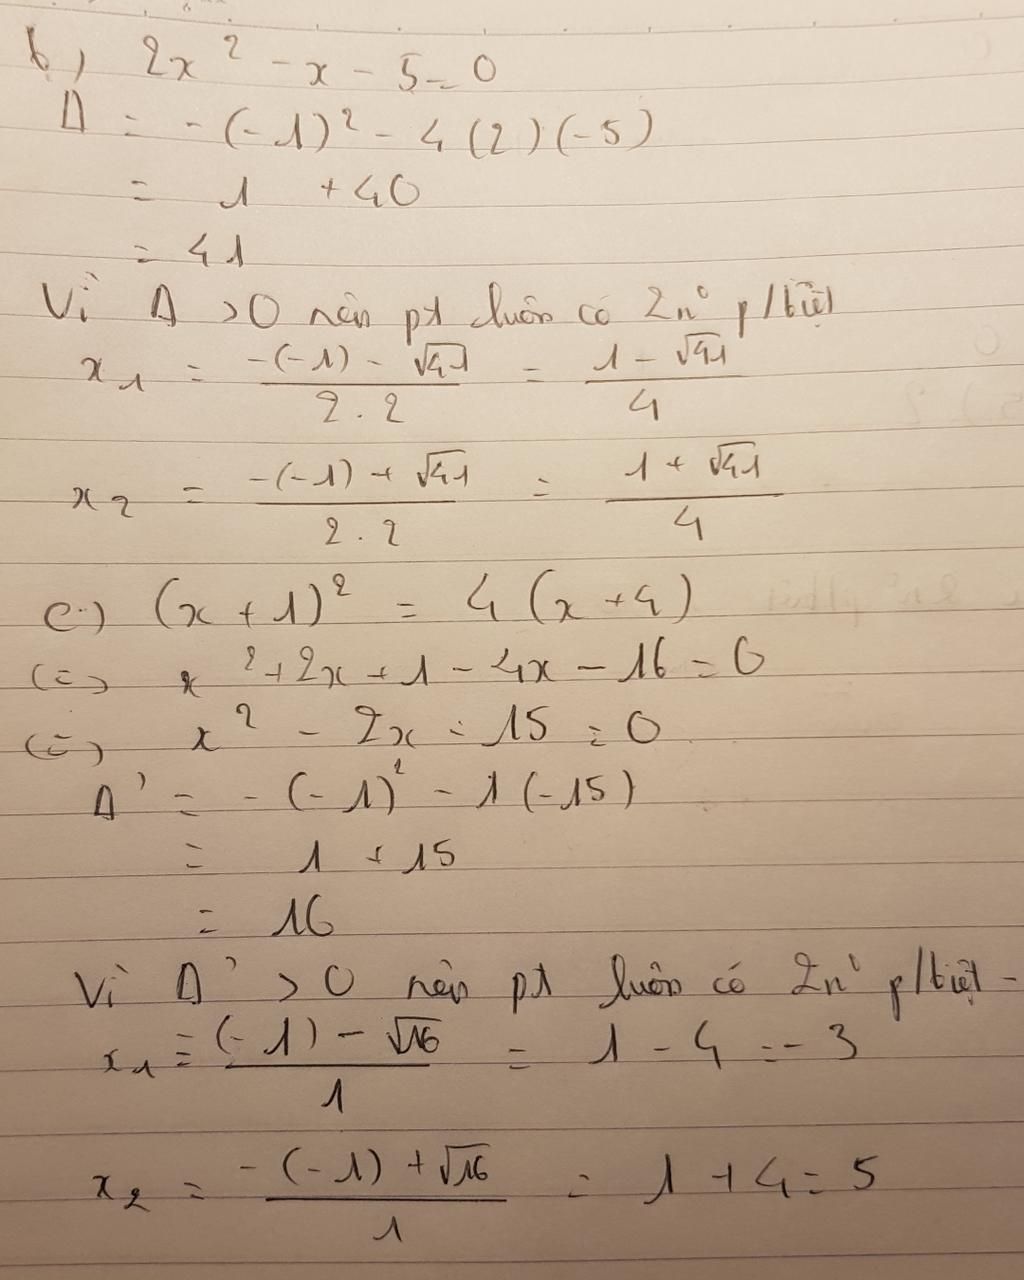 b, 2x² - x - 5 = 0
Δ = -(-1)² - 4(2)(-5)
= 1 + 40
= 41
Vì Δ > 0 nên pt luôn có 2n° p/biệt
x₁ = -(-1) - √41 / 2.2 = 1 - √41 / 4
x₂ = -(-1) + √41 / 2.2 = 1 + √41 / 4
c.) (x + 1)² = 4(x + 4)
(=) x² + 2x + 1 - 4x - 16 = 0
(=) x² - 2x - 15 = 0
Δ' = -(-1)² - 1(-15)
= 1 + 15
= 16
Vì Δ' > 0 nên pt luôn có 2n° p/biệt -
x₁ = (-1) - √16 / 1 = 1 - 4 = -3
x₂ = -(-1) + √16 / 1 = 1 + 4 = 5